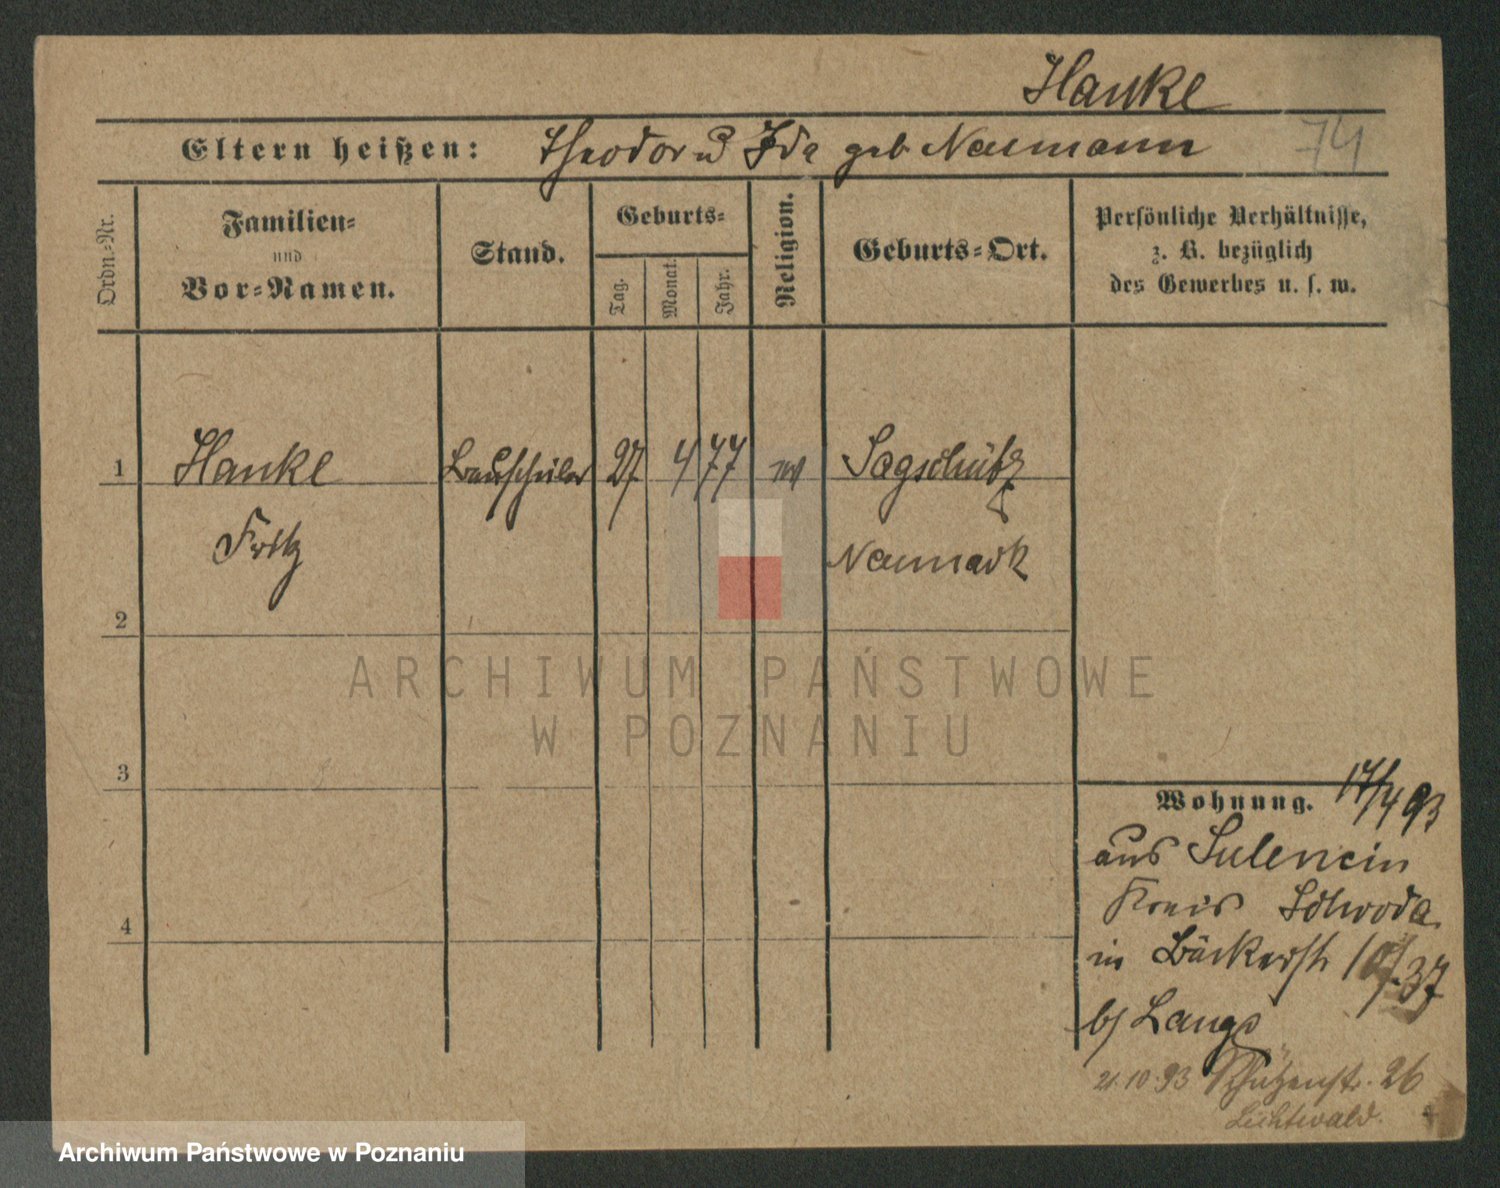 Hanke
Eltern heißen: Theodor u Ida geb Naumann
74
Ordn.-Nr.
Familien-
und
Vor-Namen.
Stand.
Geburts-
Tag.
Monat.
Jahr.
Religion.
Geburts-Ort.
Persönliche Verhältnisse,
z. B. bezüglich
des Gewerbes u. s. w.
1
Hanke
Bauschüler
27
4
77
ev
Sagschütz
Fritz
Neumark
2
ARCHIWUM PAŃSTWOWE
W POZNANIU
3
Wohnung. 17/4 93
aus Sulencin
Kreis Schroda
in Bäckerstr
4
b/ Lange
21.10.93 Schützenstr. 26
Lichtwald.
Archiwum Państwowe w Poznaniu